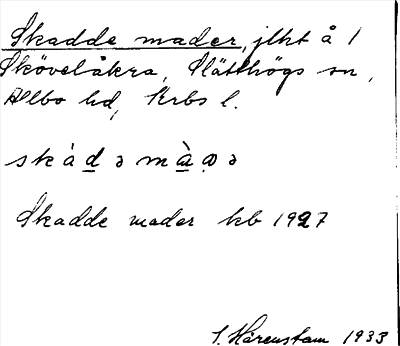 Skadde mader, jlht å 1
Skövelåkra, Slätthögs sn,
Allbo hd, Krbs l.
skàdə màdə
Skadde mader kb 1927
S. Härenstam 1933